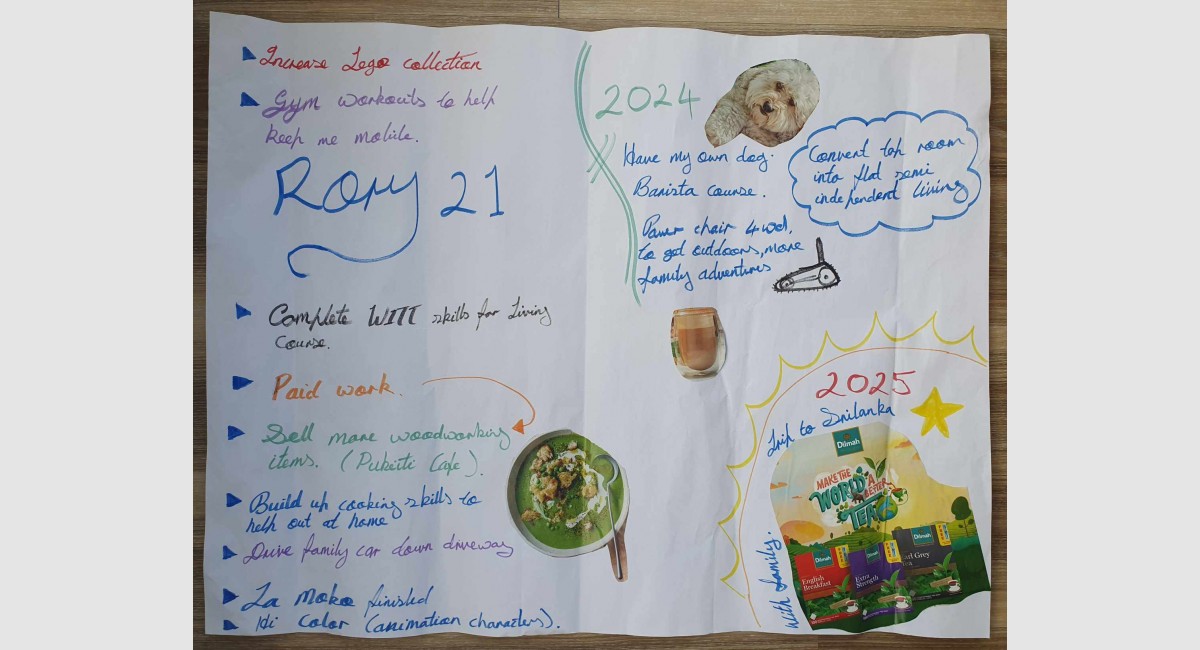 Increase Lego collection
Gym workouts to help
keep me mobile.
Rory 21
Complete WITT skills for Living
Course.
Paid work.
Sell more woodworking
items. (Pukeiti Cafe).
Build up cooking skills to
help out at home
Drive family car down driveway
Ta Moko finished
Hi Color (animation characters).
2024
Have my own dog.
Barista course.
Power chair 4wd.
to get outdoors, more
family adventures
Convert top room
into flat semi
independent living
2025
Trip to Srilanka
With family.
Dilmah
MAKE THE
WORLD A
BETTER
TEA
Dilmah
English
Breakfast
Dilmah
Extra
Strength
Dilmah
Earl Grey